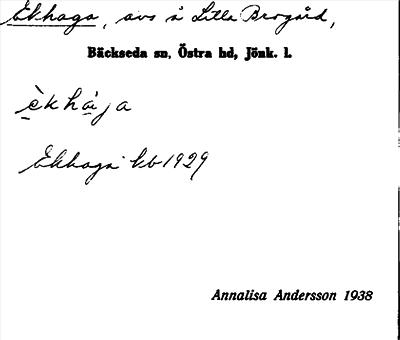 Ekhaga, avs å Lilla Brogård,
Bäckseda sn, Östra hd, Jönk. l.
èkhàja
Ekhaga kb 1929
Annalisa Andersson 1938